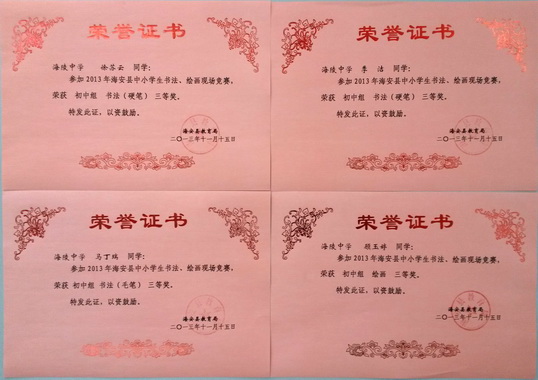 荣誉证书
海陵中学 徐苏云 同学:
参加2013年海安县中小学生书法、绘画现场竞赛,
荣获 初中组 书法(硬笔) 三等奖。
特发此证,以资鼓励。
海安县教育局
二〇一三年十一月十五日
荣誉证书
海陵中学 李洁 同学:
参加2013年海安县中小学生书法、绘画现场竞赛,
荣获 初中组 书法(硬笔) 三等奖。
特发此证,以资鼓励。
海安县教育局
二〇一三年十一月十五日
荣誉证书
海陵中学 马丁瑞 同学:
参加2013年海安县中小学生书法、绘画现场竞赛,
荣获 初中组 书法(毛笔) 三等奖。
特发此证,以资鼓励。
海安县教育局
二〇一三年十一月十五日
荣誉证书
海陵中学 顾玉婷 同学:
参加2013年海安县中小学生书法、绘画现场竞赛,
荣获 初中组 绘画 三等奖。
特发此证,以资鼓励。
海安县教育局
二〇一三年十一月十五日